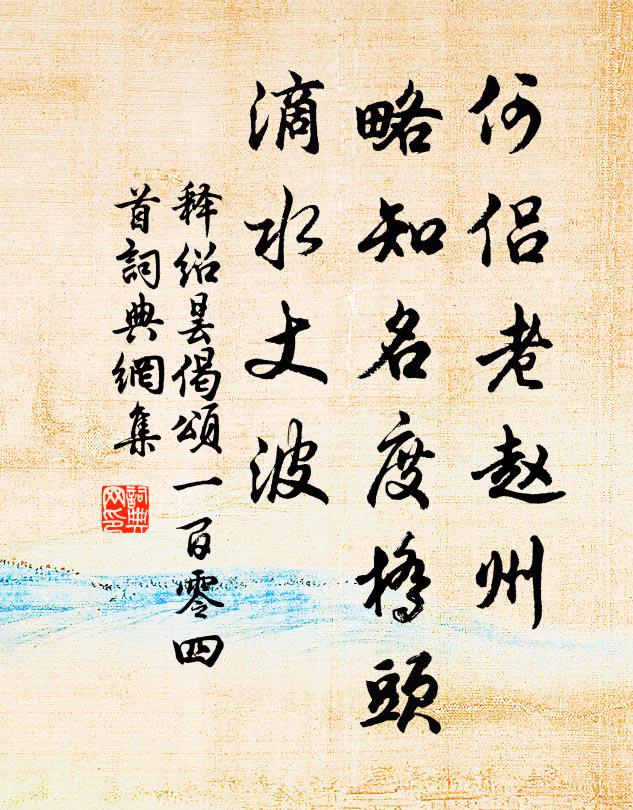 何侣老赵州
略知名度橋頭
滴水丈波
释绍昙偈頌一百零四
首詞典網集
詞典网印